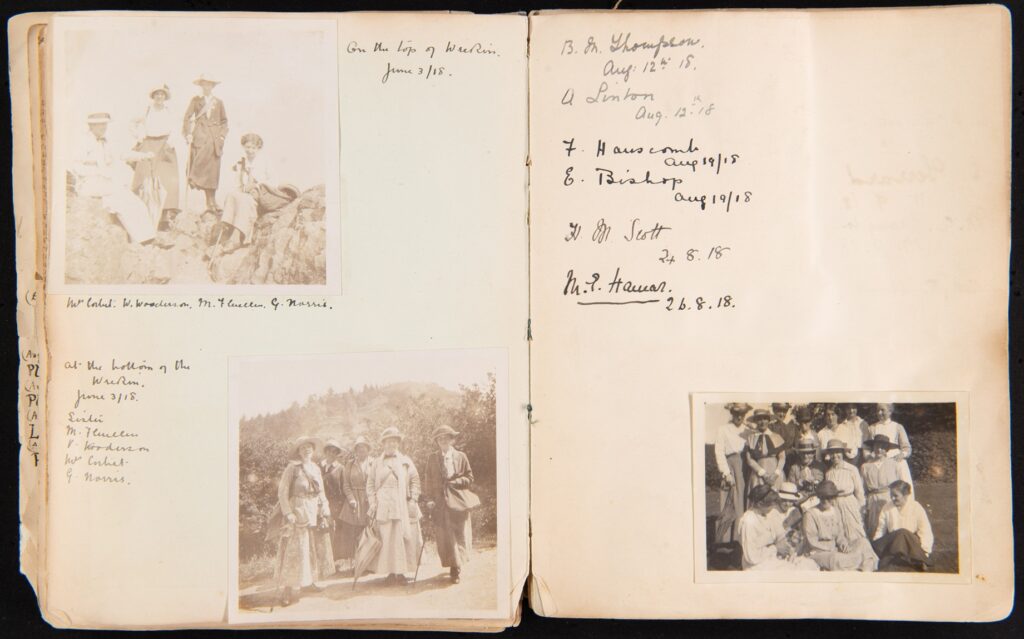 On the top of Wrekin.
June 3/18.
Mrs Corbet. W. Wooderson. M. Fluellen. G. Norris.
At the bottom of the
Wrekin.
June 3/18.
Sister
M. Fluellen
V. Wooderson
Mrs Corbet
G. Norris.
B. M. Thompson.
Aug. 12th 18.
A Linton
Aug. 12th 18
F. Hanscomb
Aug 19/18
E. Bishop
Aug 19/18
H. M. Scott
24 8. 18
M. E. Hamar.
26. 8. 18.